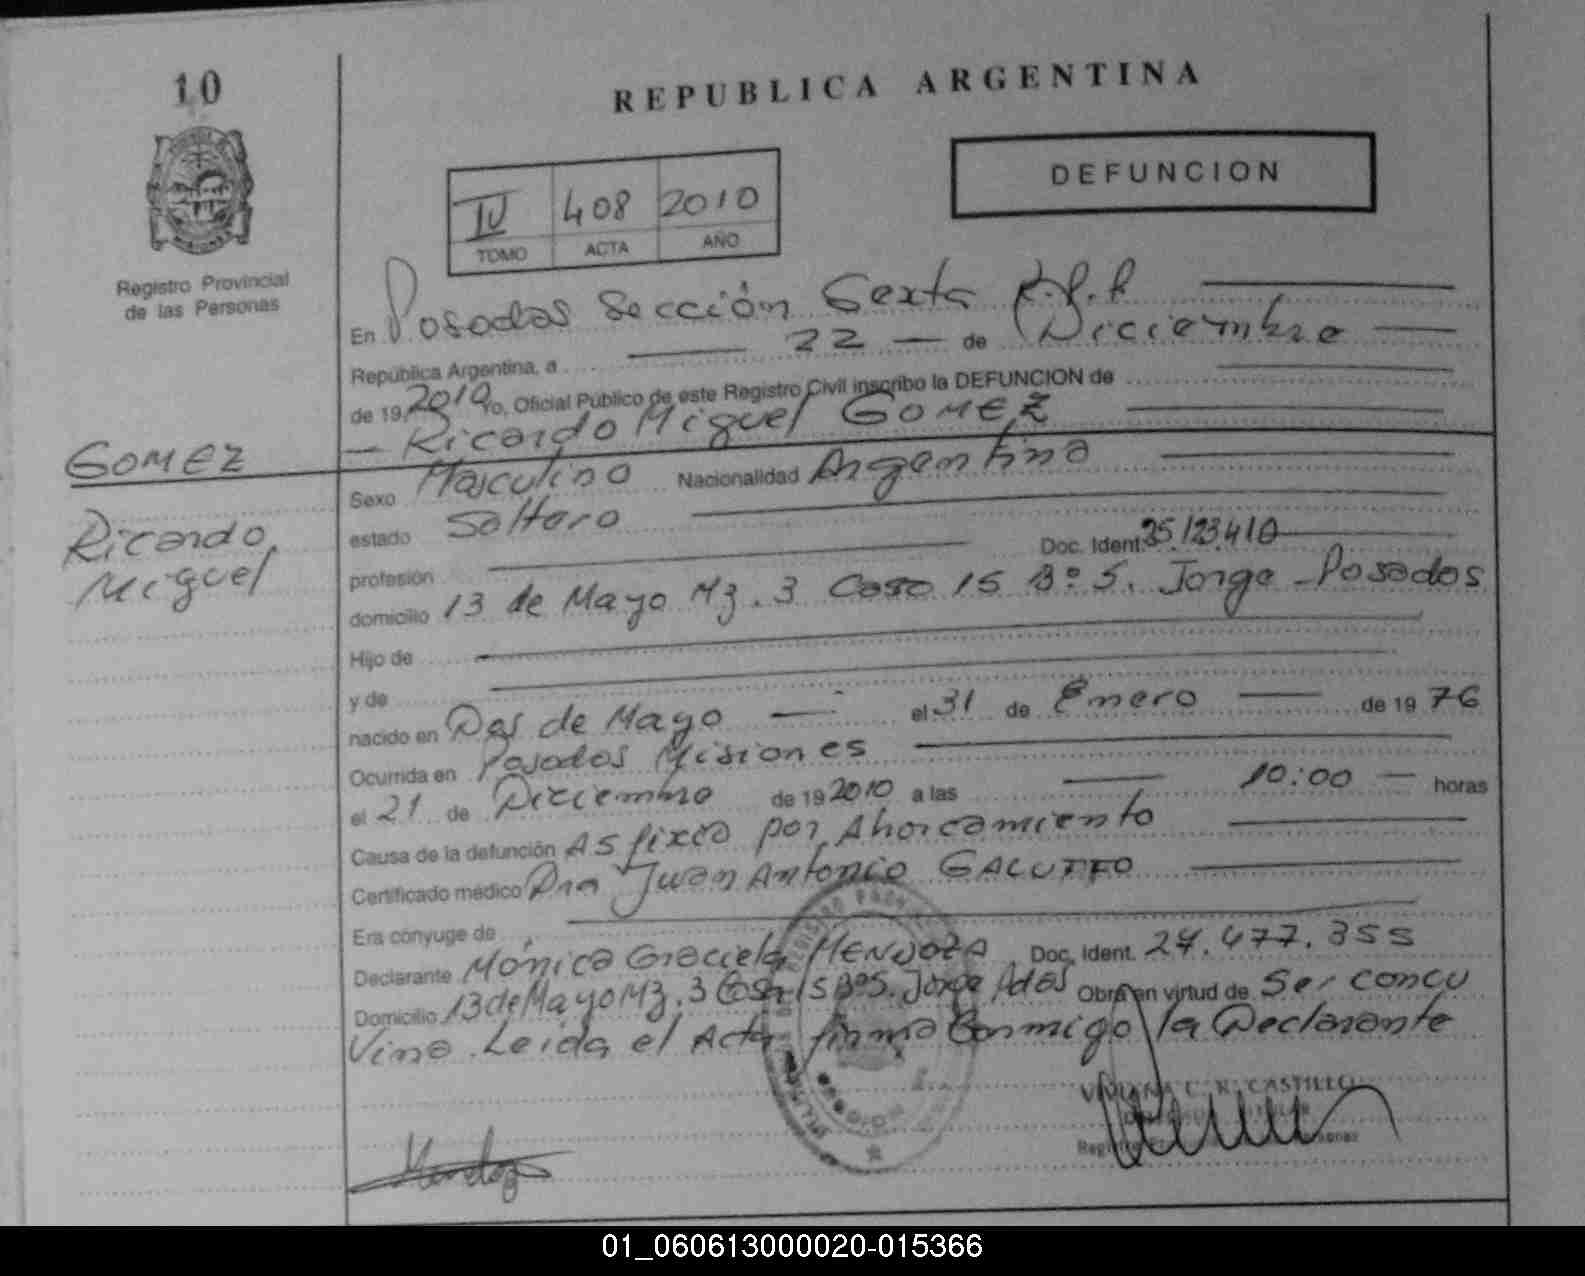 10
REPUBLICA ARGENTINA
DEFUNCION
IV 408 2010
TOMO ACTA AÑO
Registro Provincial
de las Personas
En Posadas Sección Sexta R.P.P
República Argentina, a 22 de Diciembre
de 19 2010 Yo, Oficial Público de este Registro Civil inscribo la DEFUNCION de
Ricardo Miguel GOMEZ
GOMEZ
Ricardo
Miguel
Sexo Masculino Nacionalidad Argentina
estado Soltero
profesión Doc. Ident. 25.123.410
domicilio 13 de Mayo Mz. 3 Casa 15 Bº S. Jorge - Posadas
Hijo de
y de
nacido en Dos de Mayo el 31 de Enero de 19 76
Ocurrida en Posadas Misiones
el 21 de Diciembre de 19 2010 a las 10:00 horas
Causa de la defunción Asfixia por Ahorcamiento
Certificado médico Juan Antonio
Era cónyuge de
Declarante Mónica Graciela MENDOZA Doc. Ident. 24.477.355
Domicilio 13 de Mayo Mz. 3 Casa 15 Bº S. Jorge Pdas Obra en virtud de Ser concu
vina. Leida el Acta firma Conmigo la Declarante
VIVIANA C. R. CASTILLO
Mendoza
01_060613000020-015366